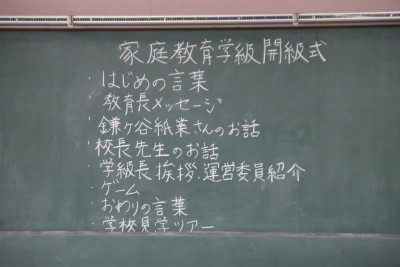 家庭教育学級開級式
・はじめの言葉
・教育長メッセージ
・鎌ヶ谷紙業さんのお話
・校長先生のお話
・学級長挨拶.運営委員紹介
・ゲーム
・おわりの言葉
・学校見学ツアー